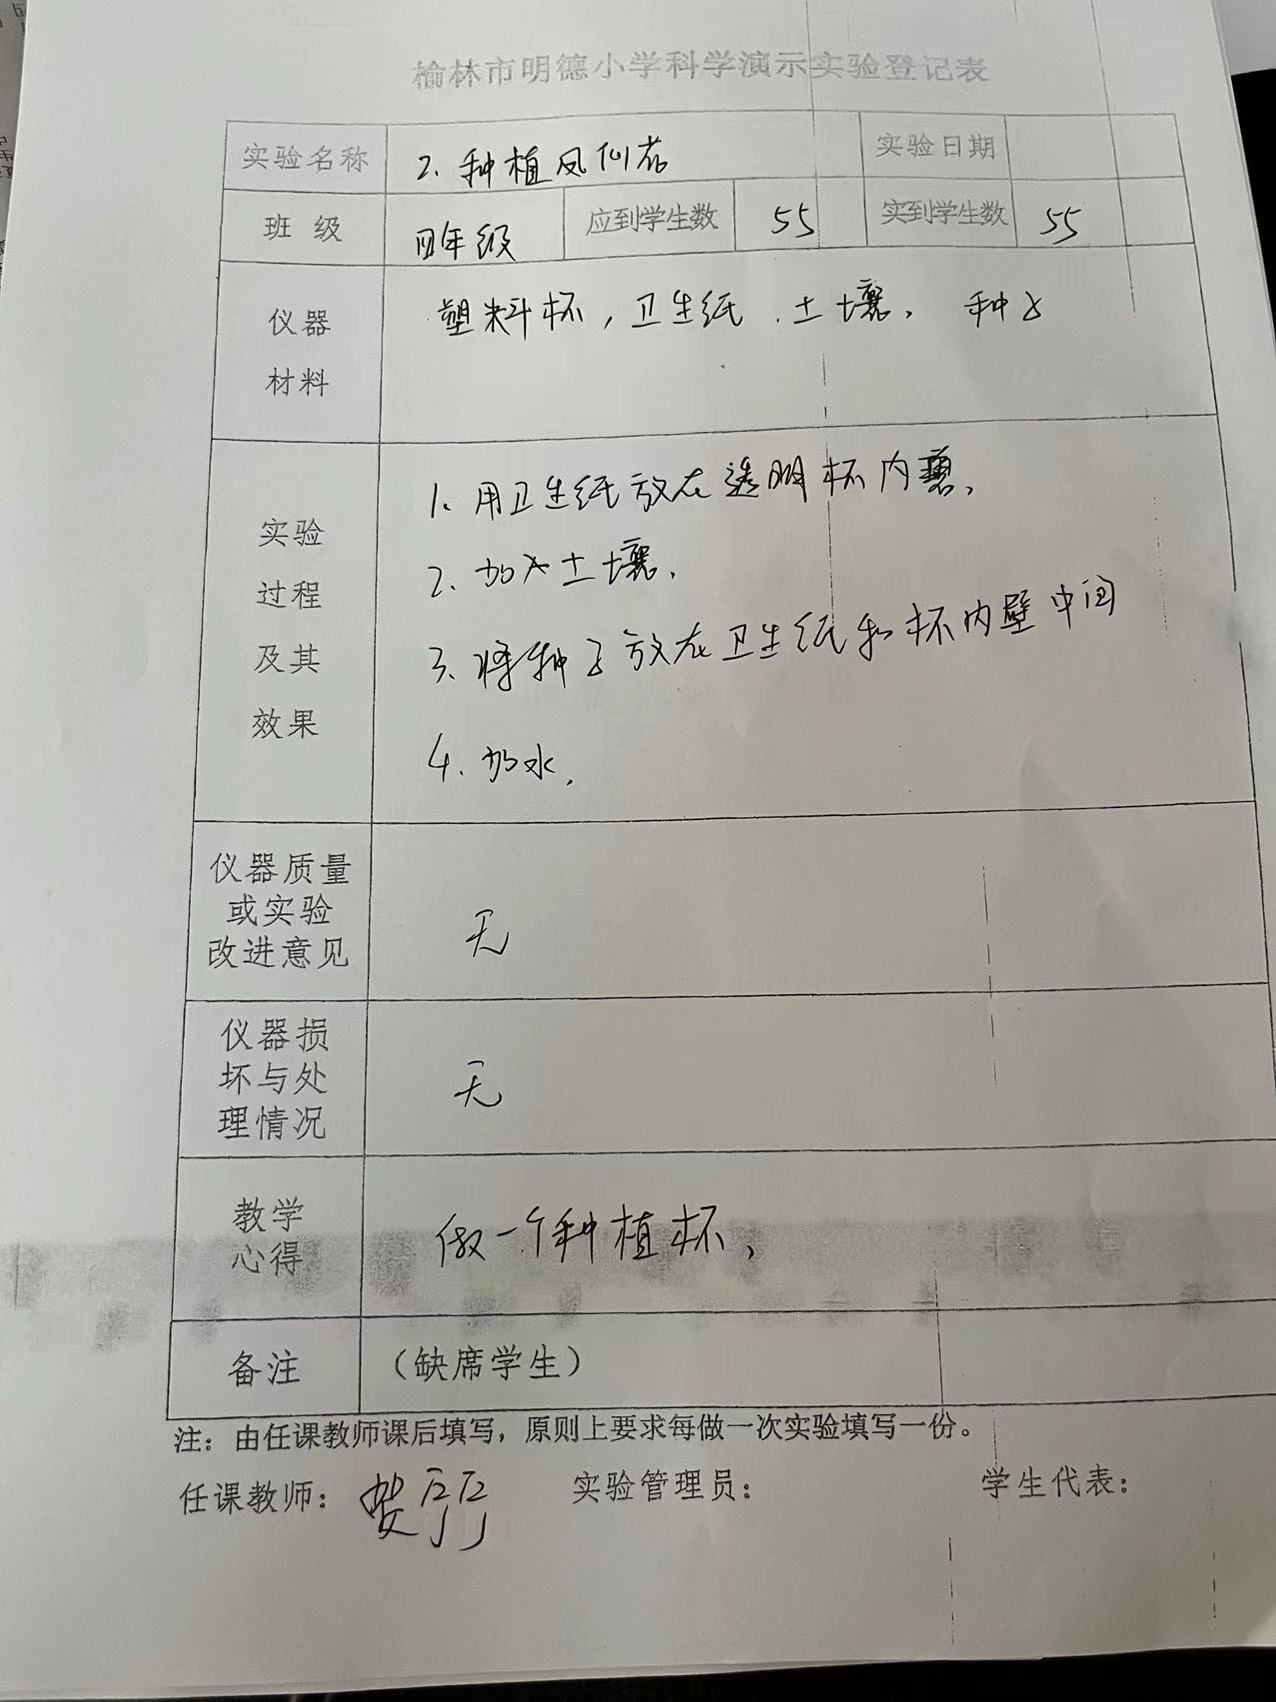 榆林市明德小学科学演示实验登记表
实验名称 2. 种植凤仙花 实验日期
班 级 四年级 应到学生数 55 实到学生数 55
仪器
材料
塑料杯，卫生纸、土壤、种子
实验
过程
及其
效果
1、用卫生纸放在透明杯内壁、
2、加入土壤、
3、将种子放在卫生纸和杯内壁中间
4、加水、
仪器质量
或实验
改进意见
无
仪器损
坏与处
理情况
无
教学
心得
做一个种植杯、
备注 （缺席学生）
注：由任课教师课后填写，原则上要求每做一次实验填写一份。
任课教师： 实验管理员： 学生代表：